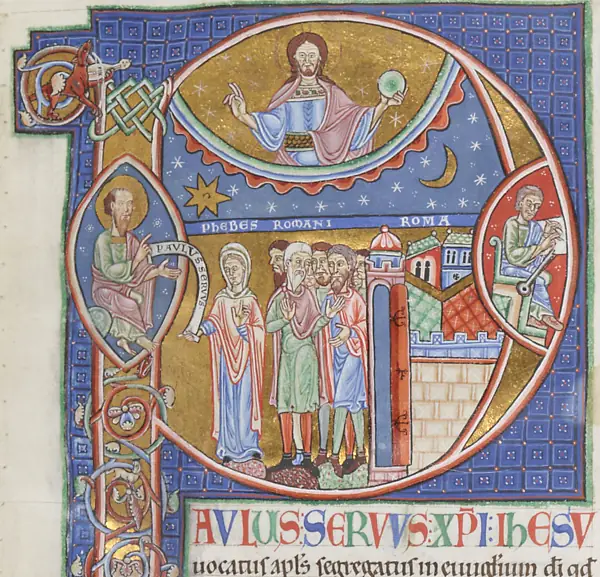 PHEBES ROMANI ROMA
PAVLVS SERVVS
AVLVS:SERVVS:XP̅I:IHESV
uocatus apl̅s segregatus in euugl̅ium di̅ qd̅